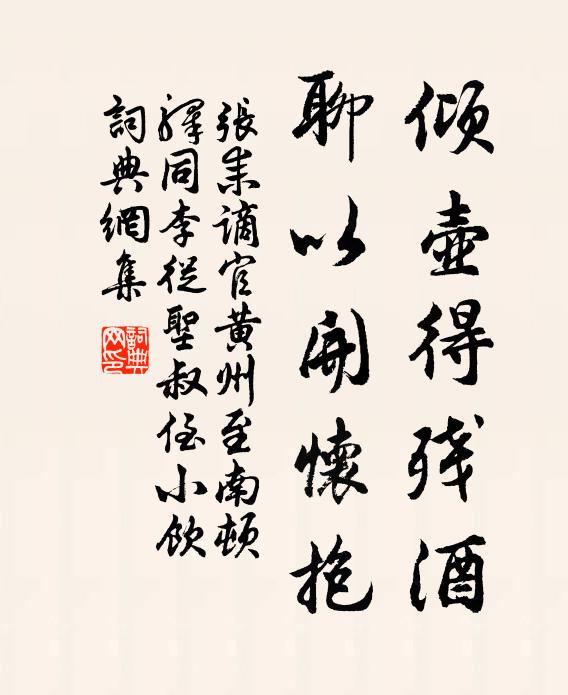 倾壶得残酒
聊以開懷抱
張耒謫官黄州至南頓
驛同李從聖叔侄小飲
詞典網集
詞典
网印